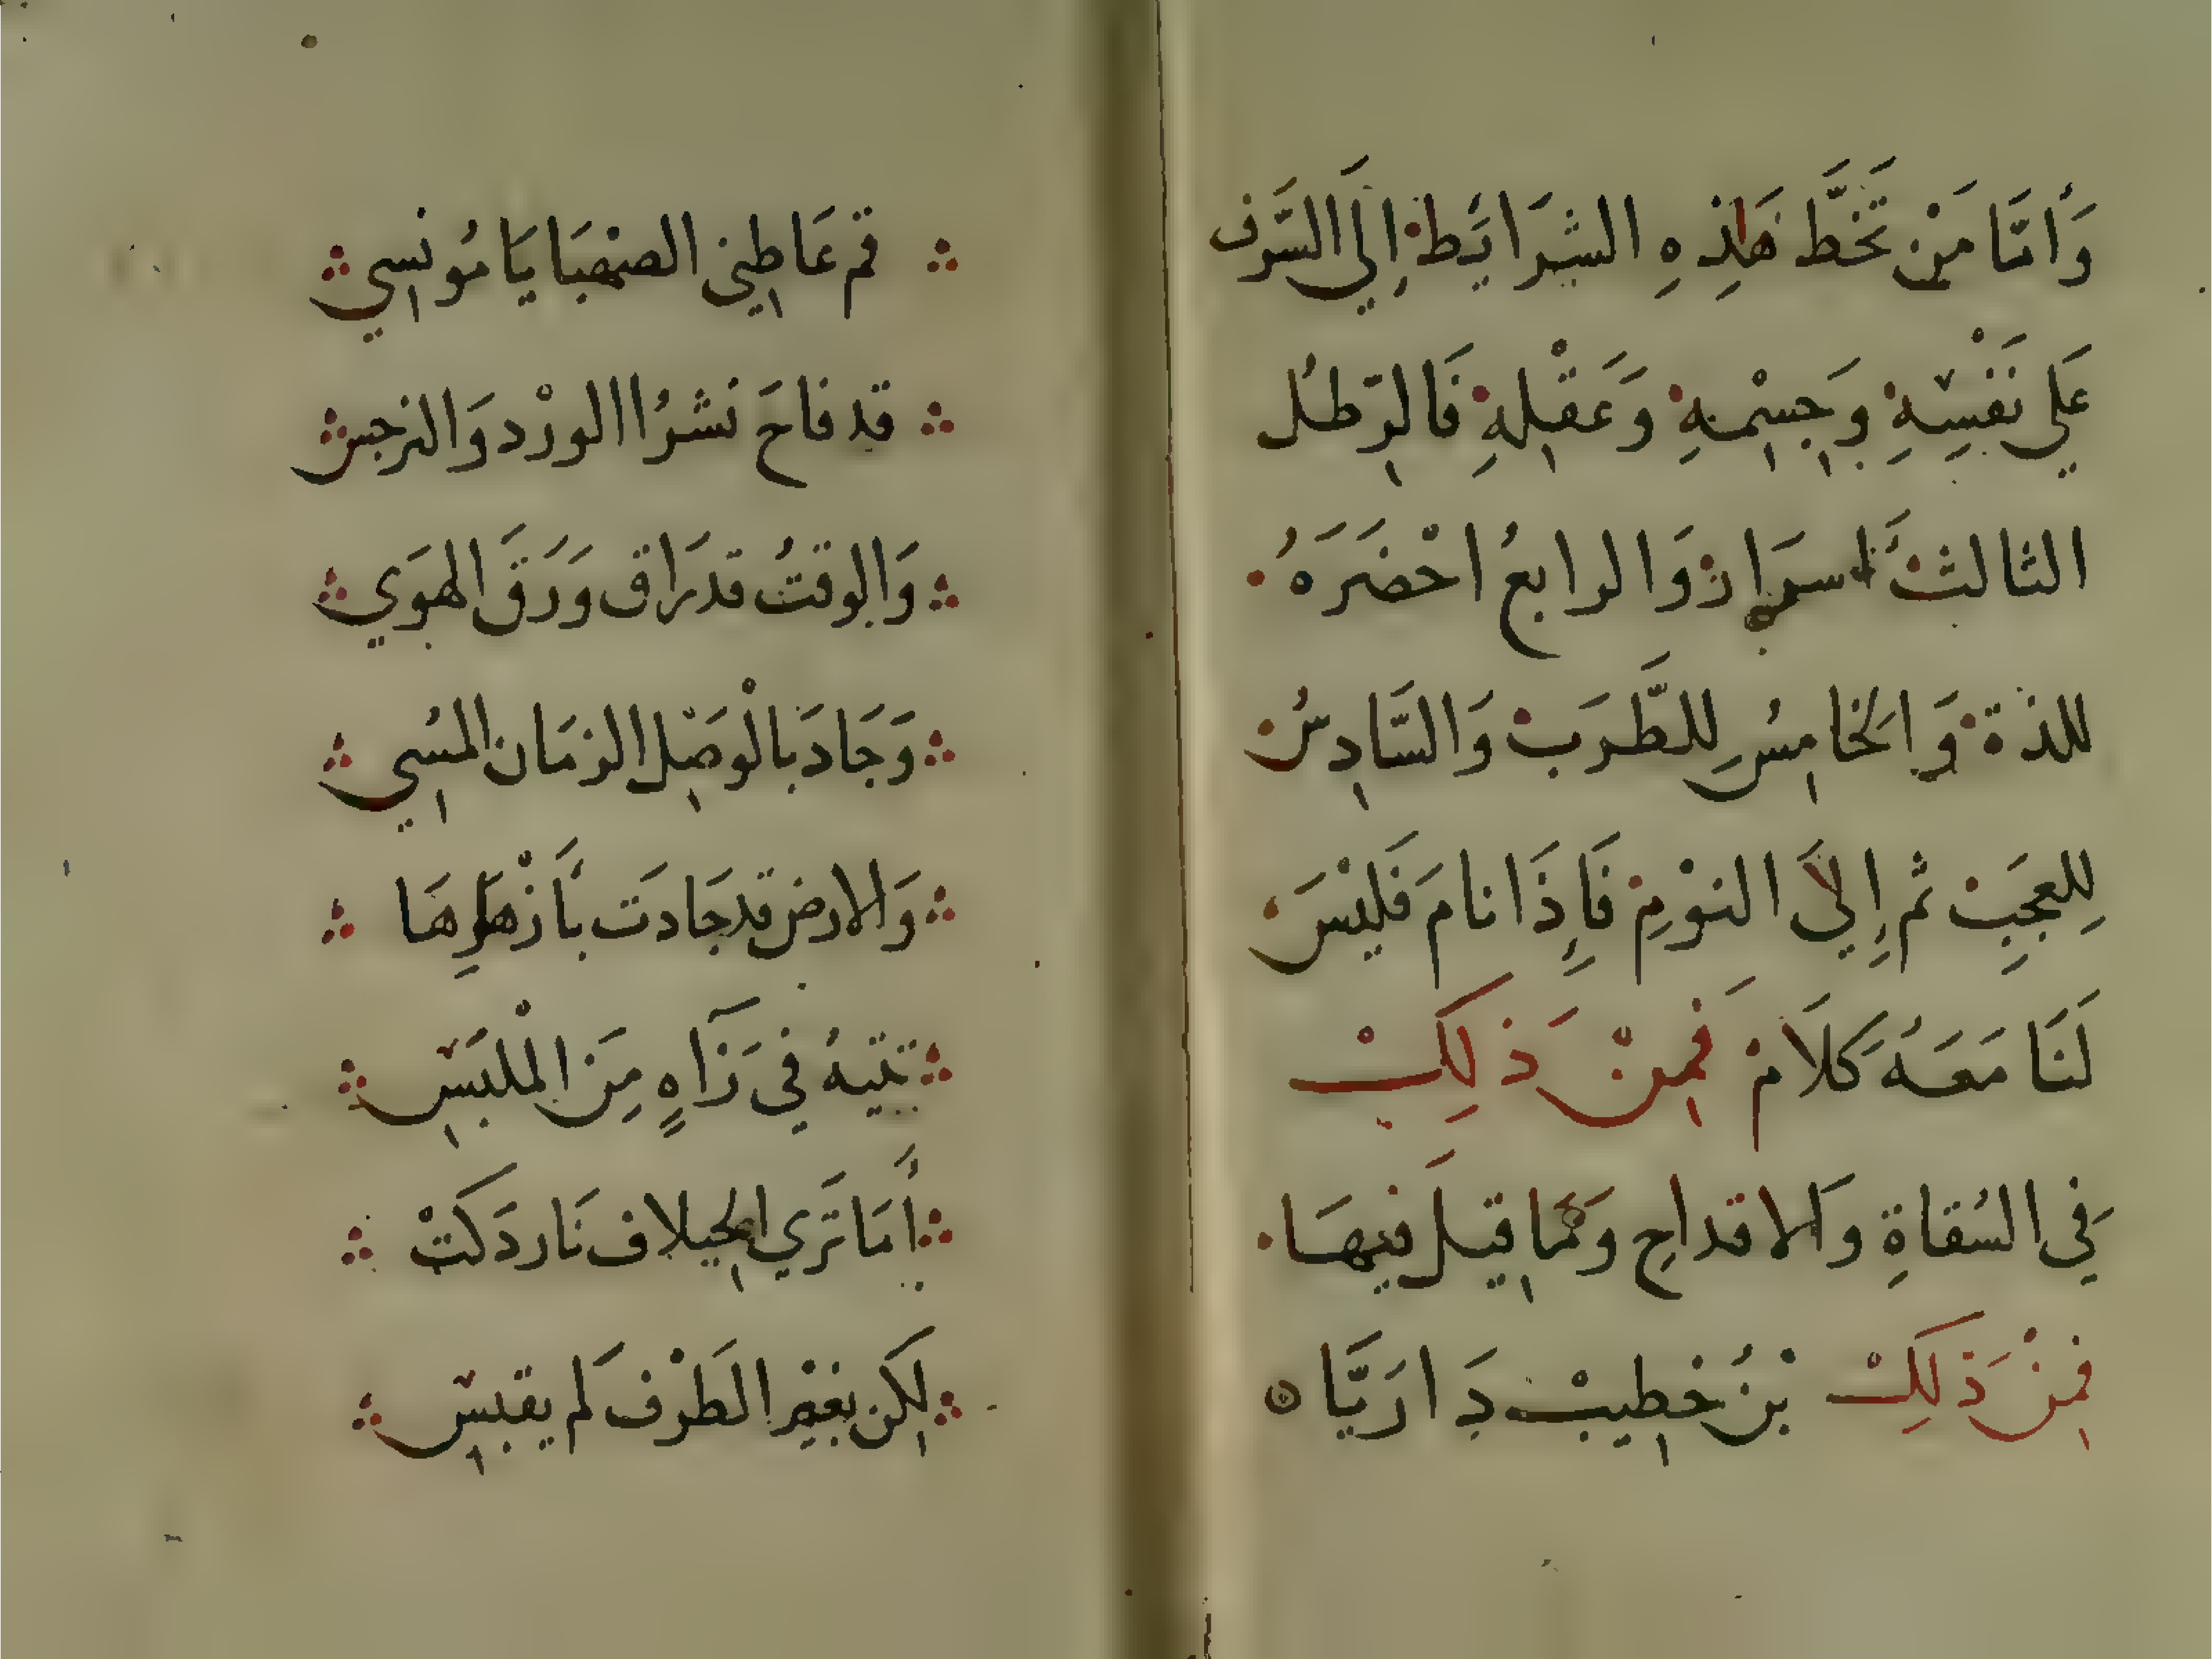 وَأَمَّا مَنْ تَخَطَّ هَاذِهِ الشَرَايَط إِلَى السَّرَف
عَلي نَفْسِهِ وَجِسْمِهِ وَعَقْلِهِ فَالرّطلُ
الثالث اسرار وَالرابعُ احْضَرَهُ
للذة وَالخامِسُ لِلطَّرَبْ وَالسَّادِسُ
لِلعجَبِ ثم إِليَ النوْمِ فَإِذَا نامَ فَليْسَ
لَنَا مَعَهُ كَلَامْ فَمِنْ ذَلِكْ
فِي السُقاةِ وَالاقداحِ وَمَما قِيلَ فِيهَا
فمِنْ ذَلِكْ بْنُ خطِيبْ دَارَيَّا
قم عَاطِني الصَهْبَا يَا مُونسِي
قد فاحَ نشرُ االورْد وَالنرجس
وَالوقتُ قد رَاق وَرَقَ الهَوَي
وَجَادَ بالْوصْلِ الزمَان المُسِي
وَالارض قد جَادَت بأَزْهَارِهَا
تتيهُ في زَآهٍ مِنَ المْلبَسِ
أَمَا تَرَي الخِيلاف نَار دَكَتْ
لكِن بغيْر الطَرْف لَم يقبسِ